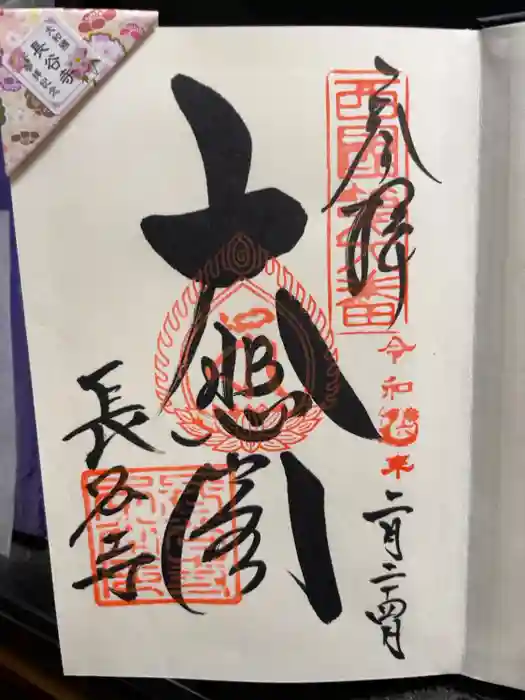 奉拝
令和年
二月二十四日
大悲閣
長谷寺
大和國
長谷寺